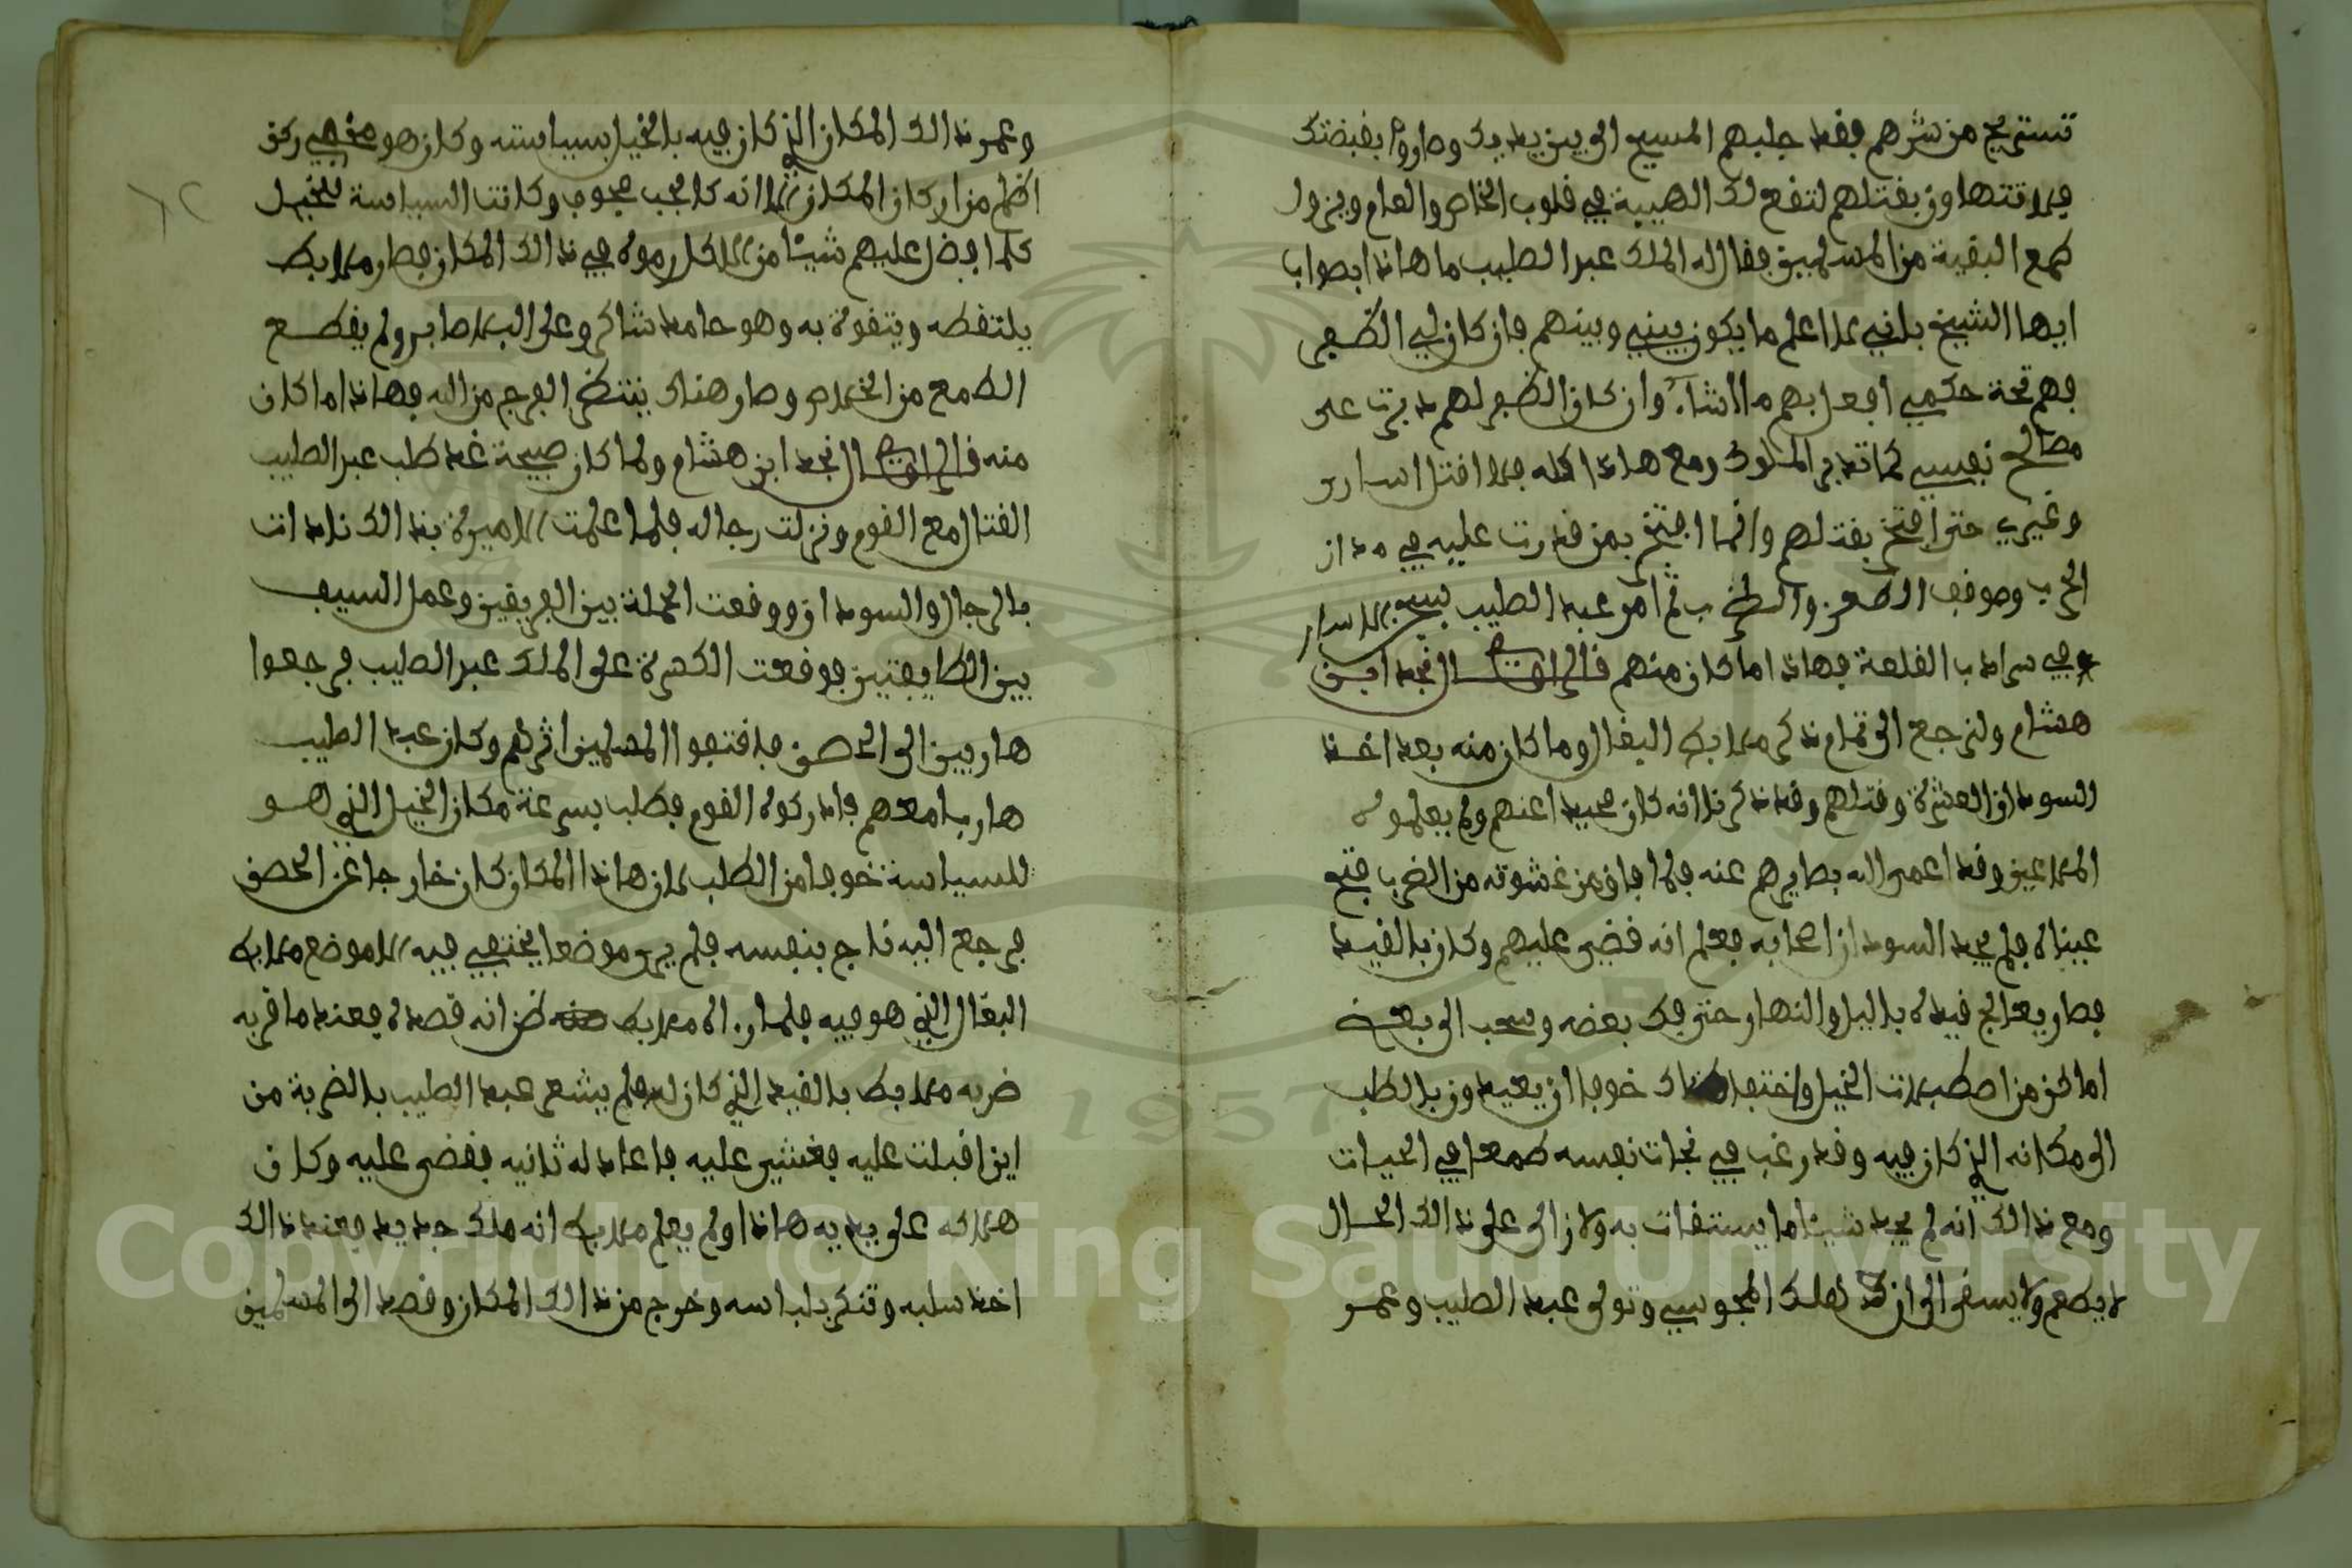 تستريح من شرهم فقد جلبهم المسيح الى بين يديك وصاروا بقبضتك
فلا تتهاون بقتلهم لتقع لك الهيبة في قلوب الخاص والعام ويزول
طمع البقية من المسلمين فقال له الملك عبد الصليب ما هاذا بصواب
ايها الشيخ بانني لا اعلم ما يكون بيني وبينهم فان كان لي الظفر
فهم تحت حكمي افعل بهم ما اشاء وان كان الظفر لهم دبرت على
مصالح نفسي كما تدبر الملوك ومع هاذا كله فلا اقتل اسارى
وغيري حتى افتخر بقتلهم وانما افتخر بمن قدرت عليه في مدان
الحرب وموقف الطعن والضرب ثم امر عبد الصليب بسجن الاسارى
في سراديب القلعة فهاذا ما كان منهم قال الراوي نجد ابن
هشام ولنرجع الى تمام ذكر ملابط البغال وما كان منه بعد اخذ
السودان العشرة وقتلهم وقد ذكرنا انه كان بعيدا عنهم ولم يعلموه
الملاعين وقد اعمى الله بصايرهم عنه فلما فاق من غشوته من الضرب فتح
عيناه فلم يجد السودان اصحابه فعلم انه قضي عليهم وكان بالقيد
فصار يعالج قيده بالليل والنهار حتى فك بعضه وسحب الى بعض
اماكن من اصطبلات الخيل واختفا هناك خوفا ان يعيدون بالطلب
الى مكانه الذي كان فيه وقد رغب في نجات نفسه طمعا في الحيات
ومع ذالك انه لم يجد شيئا ما يستقات به ولا زال على ذالك الحال
لا يطعم ولا يسقى الى ان هلك المجوسي وتولى عبد الصليب وعمر
وعمر ذالك المكان الذي كان فيه بالخيل بسياسته وكان هو مخفي ركن
اظلم من اركان المكان لانه كالجب مجوب وكانت السياسة للخيل
كلما افضل عليهم شيئا من الاكل رموه في ذالك المكان فصار ملابط
يلتقطه ويتقوت به وهو حامد شاكر وعلى البلا صابر ولم يقطع
الطمع من الخلاص وصار هناك ينتظر الفرج من الله فهاذا ما كان
منه قال الراوي نجد ابن هشام ولما كان صبيحة غد طلب عبد الصليب
القتال مع القوم ونزلت رجاله فلما علمت الاميرة بذالك نادات
بالرجال والسودان ووقعت الحملة بين الفريقين وعمل السيف
بين الطايفتين فوقعت الكسرة على الملك عبد الصليب فرجعوا
هاربين الى الحصن فاقتفوا المسلمين اثرهم وكان عبد الصليب
هاربا معهم فادركوه القوم فطلب بسرعة مكان الخيل الذي هو
للسياسة خوفا من الطلب لان هاذا المكان كان خارجا عن الحصن
فرجع اليه ناج بنفسه فلم يرى موضعا يختفي فيه الا موضع ملابط
البغال الذي هو فيه فلما راه ملابط ظن انه قصده فعند ما قربه
ضربه ملابط بالقيد الذي كان له فلم يشعر عبد الصليب بالضربة من
اين اقبلت عليه فغشي عليه فاعاد له ثانيه فقضى عليه وكان
هلاكه على يديه هاذا ولم يعلم ملابط انه ملك جديد فعند ذالك
اخذ سلبه وتنكر بلباسه وخرج من ذالك المكان وقصد الى المسلمين
Copyright © King Saud University
1957